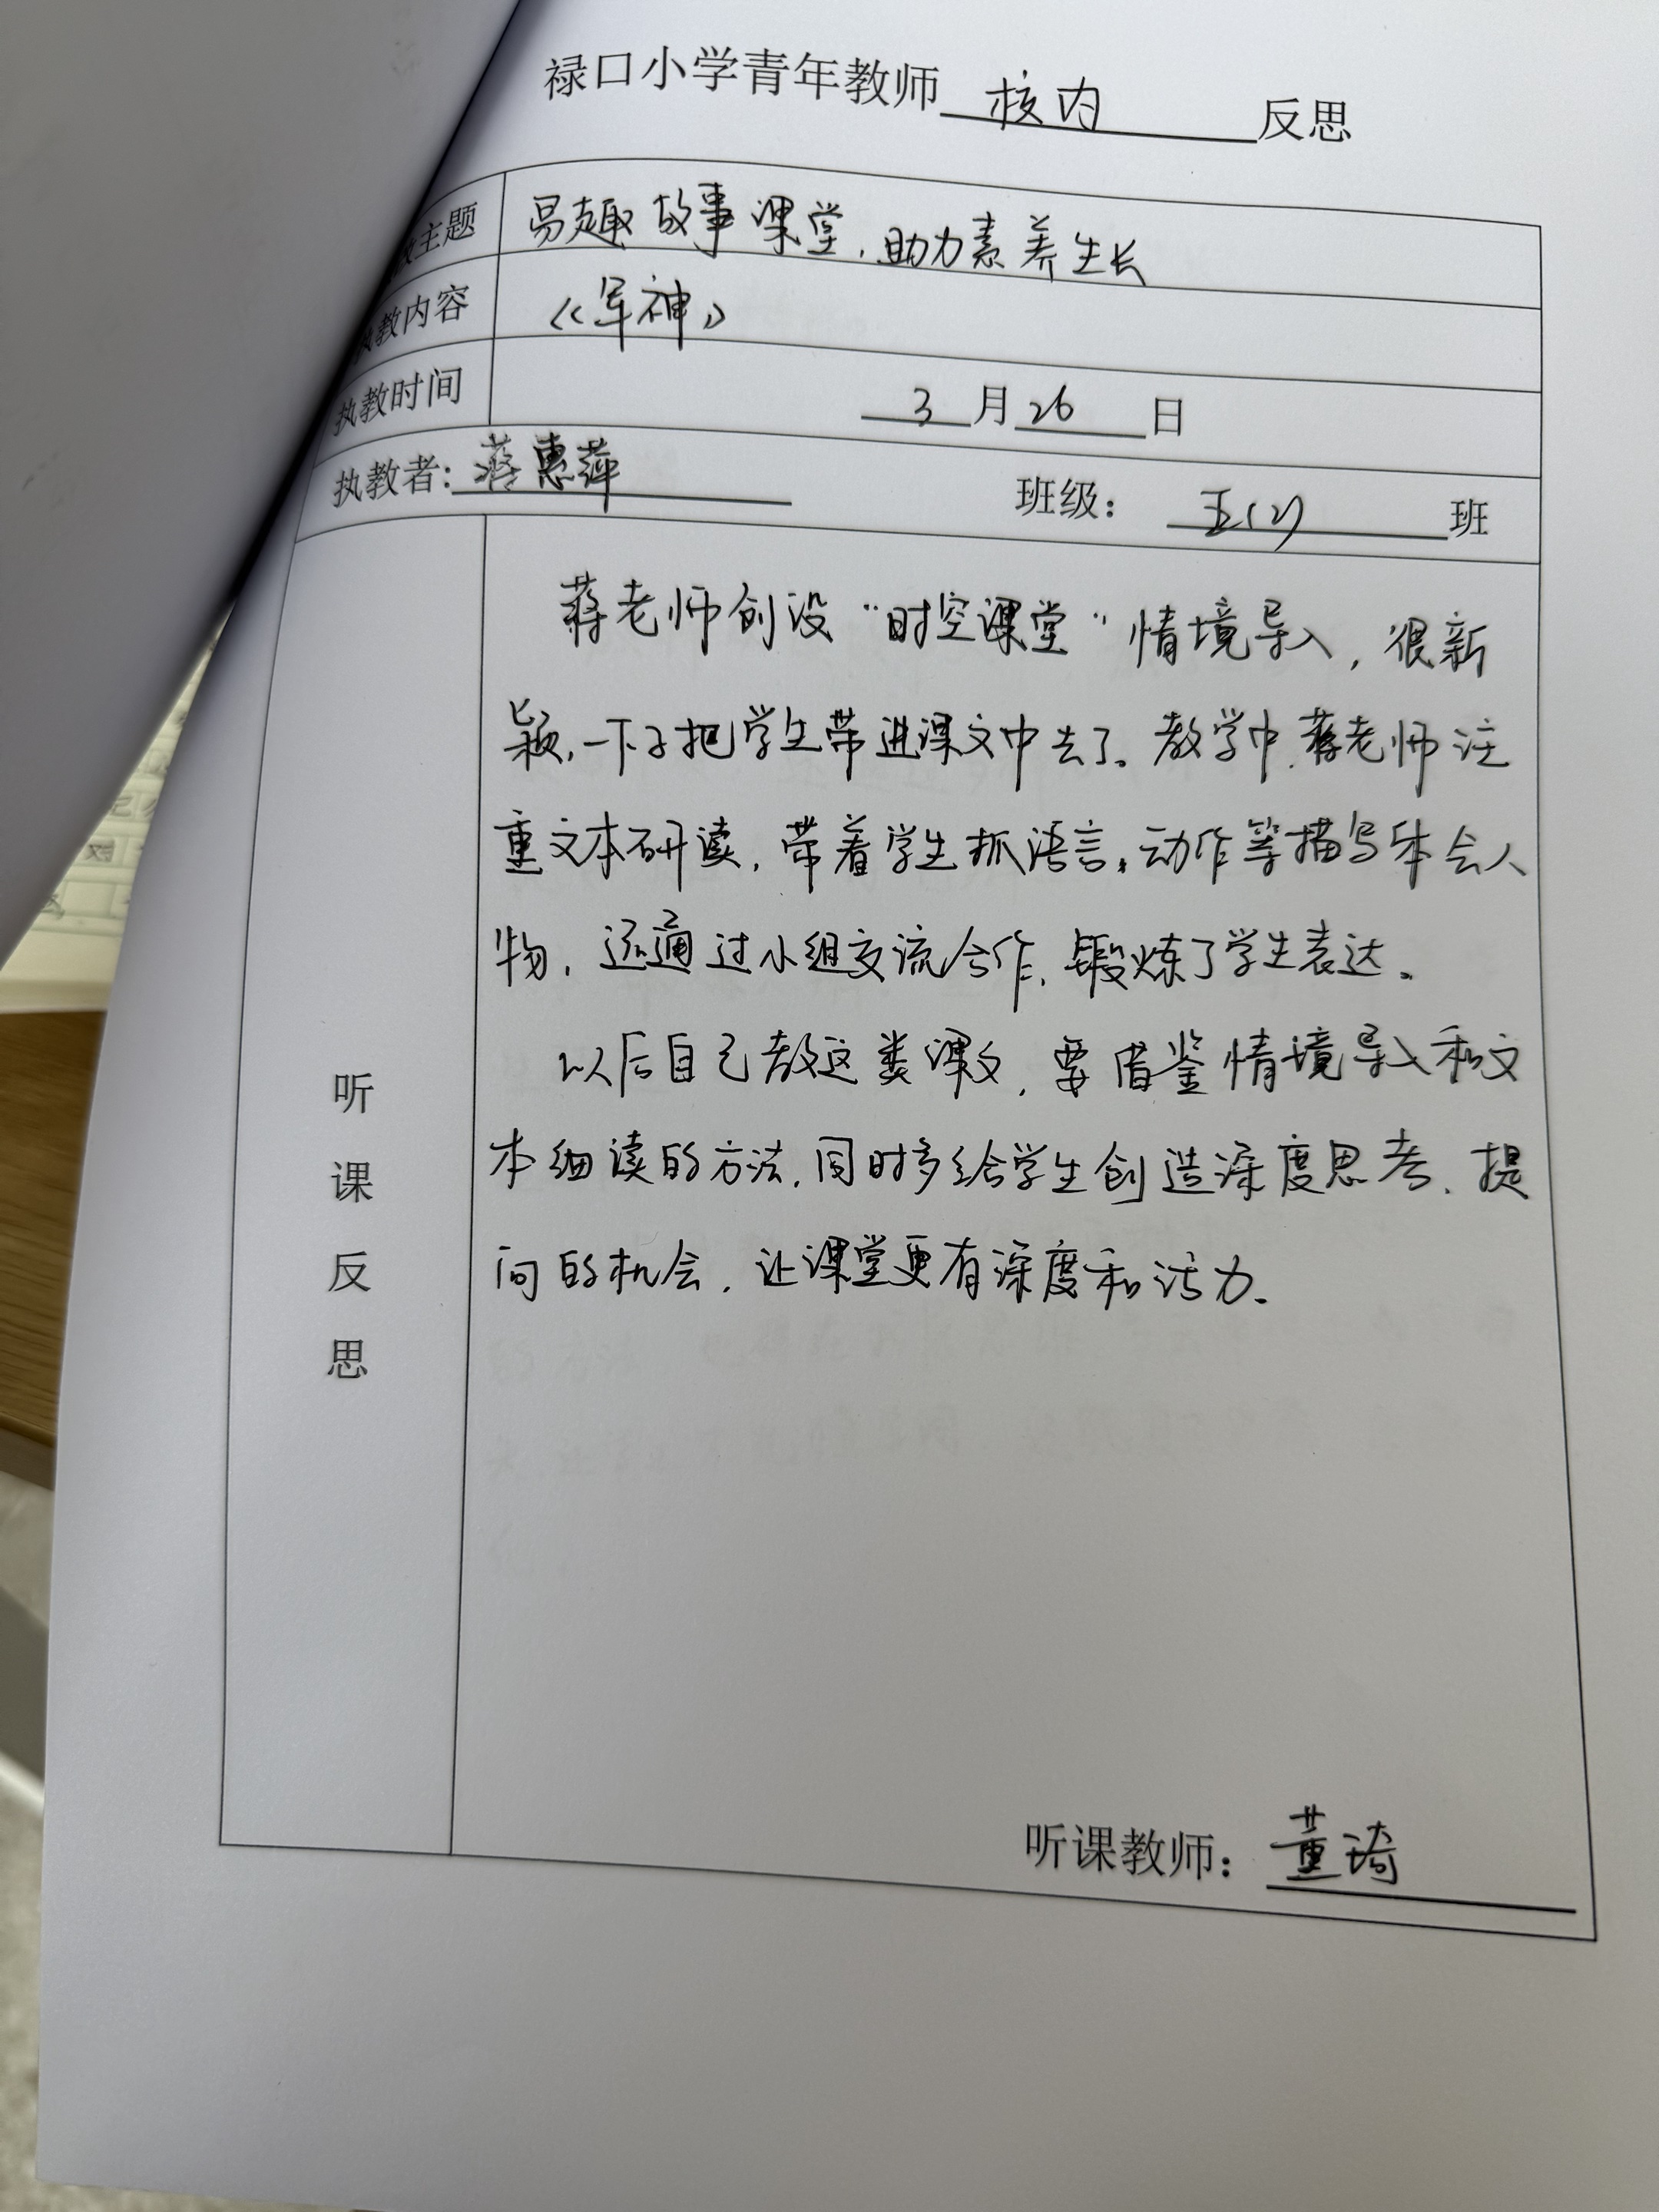 禄口小学青年教师 校内 反思
主题 易趣故事课堂，助力素养生长
执教内容 《军神》
执教时间 3月26日
执教者：蒋惠萍 班级：五(2)班
听课反思
蒋老师创设“时空课堂”情境导入，很新
颖，一下子把学生带进课文中去了。教学中，蒋老师注
重文本研读，带着学生抓语言、动作等描写体会人
物，还通过小组交流合作，锻炼了学生表达。
以后自己教这类课文，要借鉴情境导入和文
本细读的方法，同时多给学生创造深度思考、提
问的机会，让课堂更有深度和活力。
听课教师：董琦